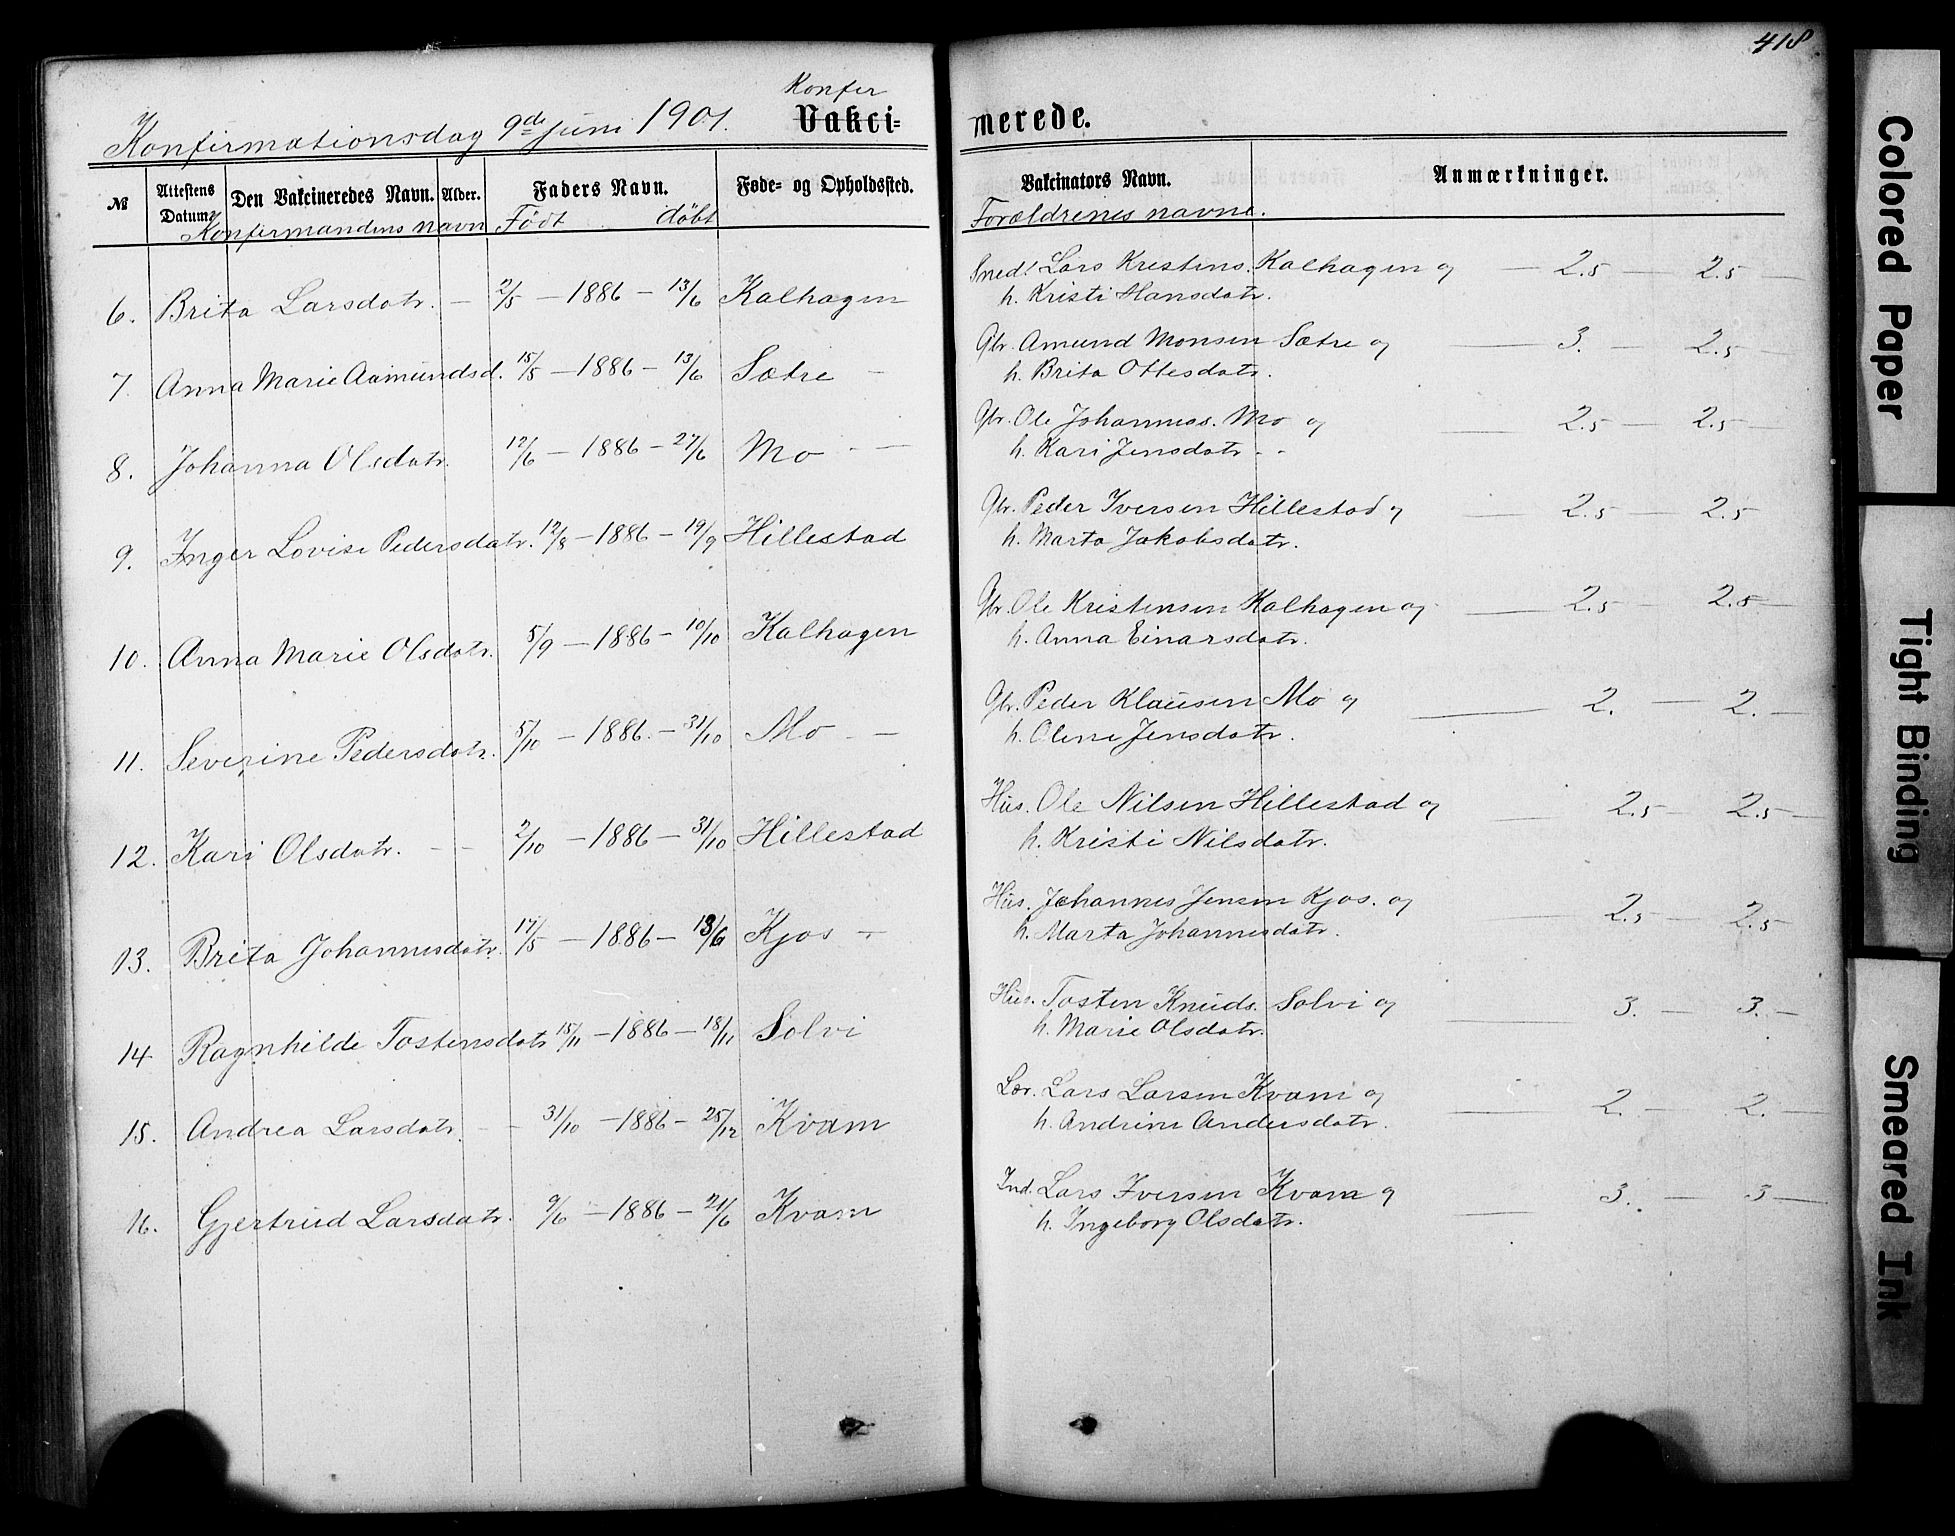 418
Konfirmationsdag 9de juni 1901.
Konfer
Vakci=
merede.
№
Attestens Datum.
Den Vakcineredes Navn.
Alder.
Faders Navn.
Føde= og Opholdssted.
Vakcinators Navn.
Anmærkninger.
Konfirmandens navn
Født døbt
Forældrenes navne.
6. Brita Larsdatr. — 2/5 — 1886 — 13/6 Kalhagen
Smed! Lars Kristens. Kalhagen og — 2.5 — 2.5 —
h. Kristi Hansdatr.
7. Anna Marie Aamundsd. 15/5 — 1886 — 13/6 Sætre —
Gbr. Amund Monsen Sætre og — 3. — 2.5 —
h. Brita Ottesdatr.
8. Johanna Olsdatr. 12/6 — 1886 — 27/6 Mo — —
Gbr. Ole Johannes. Mo og — 2.5 — 2.5 —
h. Kari Jensdatr - -
9. Inger Lovise Pedersdatr. 12/8 — 1886 — 19/9 Hillestad
Gbr. Peder Iversen Hillestad og — 2.5 — 2.5
h. Marta Jakobsdatr.
10. Anna Marie Olsdatr. 5/9 — 1886 — 10/10 Kalhagen
Gbr. Ole Kristensen Kalhagen og — 2.5 — 2.5 —
h. Anna Einarsdatr.
11. Severine Pedersdatr. 5/10 — 1886. — 31/10 Mo — —
Gbr. Peder Klausen Mo og — 2. — 2. —
h. Oline Jensdatr.
12. Kari Olsdatr. — — 2/10 — 1886 — 31/10 Hillestad
Hus. Ole Nilsen Hillestad og — 2.5 — 2.5 —
h. Kristi Nilsdatr.
13. Brita Johannesdatr. 17/5 — 1886 — 13/6 Kjos —
Hus. Johannes Jensen Kjos. og — 2.5 — 2.5
h. Marta Johannesdatr.
14 Ragnhilde Tostensdatr 15/11 — 1886 — 18/11 Solvi
Hus. Tosten Knuds. Solvi og — 3. — 3. —
h. Marie Olsdatr.
15. Andrea Larsdatr. — — 31/10 — 1886 — 25/12 Kvam
Lær. Lars Larsen Kvam og — 2. — 2. —
h. Andrine Andersdatr.
16. Gjertrud Larsdatr. 9/6 — 1886 — 21/6 Kvam
Ind. Lars Iversen Kvam og — 3. — 3 —
h. Ingeborg Olsdatr.
Colored Paper
Tight Binding
Smeared Ink